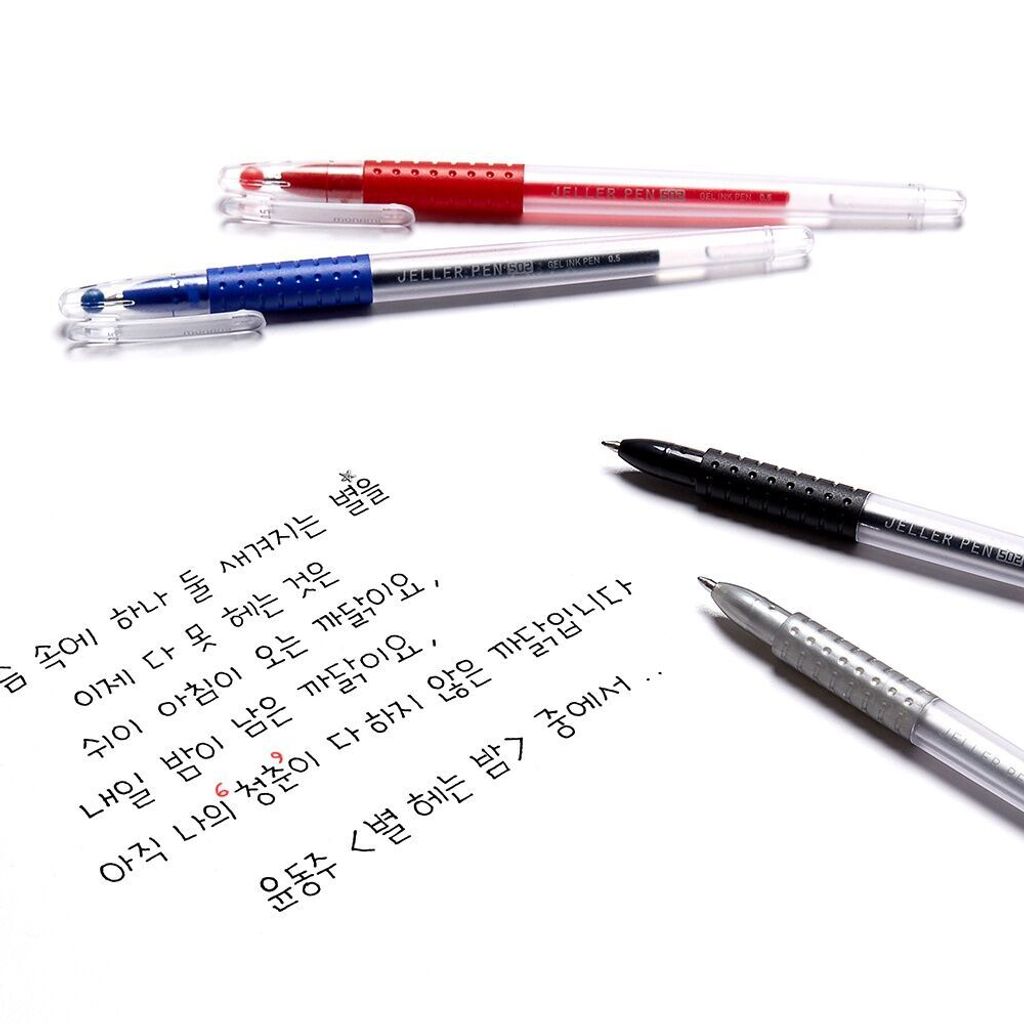 JELLER PEN 502 GEL INK PEN 0.5
0.5
monami
JELLER PEN 502 GEL INK PEN 0.5
0.5
monami
JELLER PEN 502
JELLER PEN
슴 속에 하나 둘 새겨지는 별을
이제 다 못 헤는 것은
쉬이 아침이 오는 까닭이요,
내일 밤이 남은 까닭이요,
아직 나의 청춘이 다 하지 않은 까닭입니다
6 9
윤동주 <별 헤는 밤> 중에서 ..